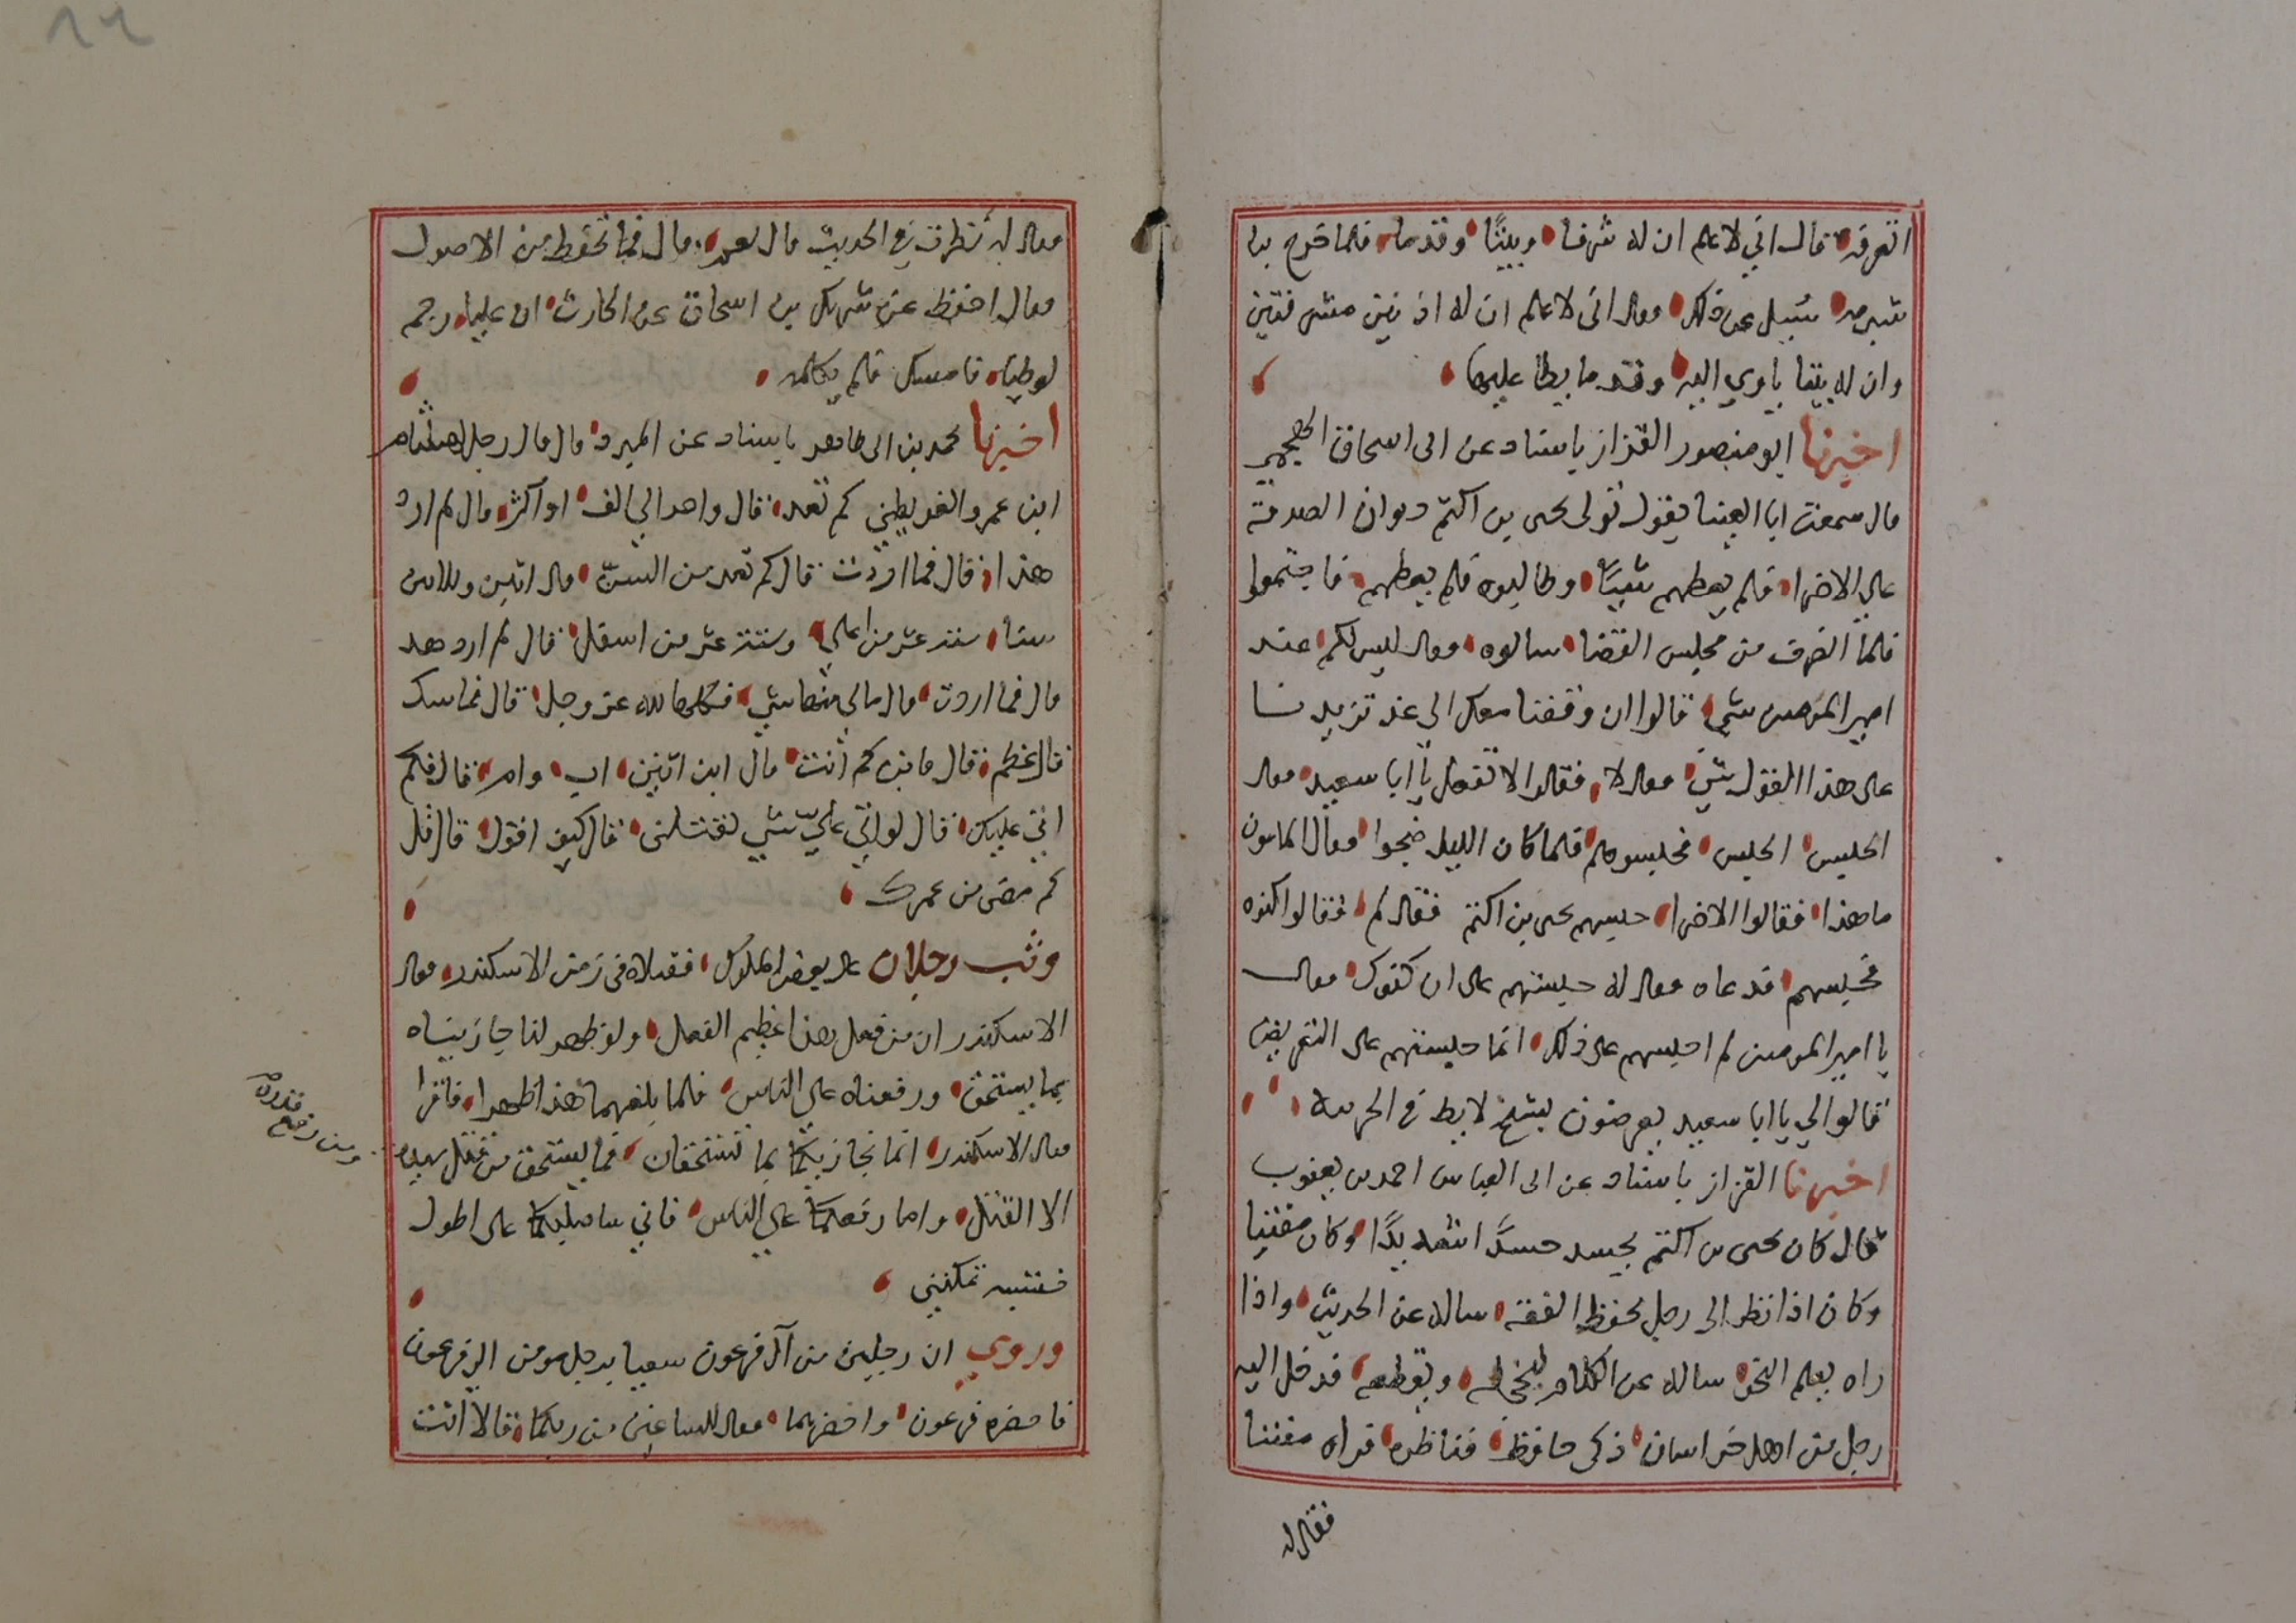 اتعرفه قال اني لاعلم ان له شرفا وبيتا وقدما فلما خرج بنا
شبرمه سُيل عن ذلك فقال انى لاعلم ان له اذنين مشرفتين
وان له بيتا ياوي اليه وقدما يطا عليها
اخبرنا ابو منصور القزاز باسناد عن ابى اسحاق الجهجمى
قال سمعت ابا العينا يقول تولى يحيى بن اكثم ديوان الصدقة
على الاضرا فلم يعطهم شيئا وطالبوه فلم يعطهم فاجتمعوا
فلما انصرف من مجلس القضا سالوه فقال ليس لكم عند
امير المومنين شي قالوا ان وقفنا معك الى غد تزيدنا
على هذا القول شي فقال لا فقالوا لا تفعل يا ابا سعيد فقال
الحبس الحبس فحبسوهم فلما كان الليل ضجوا فقال المامون
ما هذا فقالوا الاضرا حبسهم يحيى بن اكثم فقال لم فقالوا كنوه
فحبسهم فدعاه فقال له حبستهم على ان كنوك فقال
يا امير المومنين لم احبسهم على ذلك انما حبستهم على التعريض
قالوا لي يا ابا سعيد يعرضون بشيخ لايط في الحربية
اخبرنا القزاز باسناد عن ابى العباس احمد بن يعقوب
قال كان يحيى بن اكثم يحسد حسدًا شديدًا وكان مفتنا
وكان اذا نظر الى رجل يحفظ الفقه ساله عن الحديث واذا
راه يعلم النحو ساله عن الكلام ليخجله ويقطعه فدخل اليه
رجل من اهل خراسان ذكى حافظ فناظره فراه مفتنا
فقال له
فقال له نظرت في الحديث قال نعم قال فما تحفظ من الاصول
فقال احفظ عن شريك بن اسحاق عن الحارث ان عليا رجم
لوطيا فامسك فلم يكلمه
اخبرنا محمد بن ابى طاهر باسناد عن المبرد قال قال رجل لهشام
ابن عمرو الفوطي كم تعد قال واحد الي الف او اكثر قال لم ارد
هذا قال فما اردت قال كم تعد من السن قال اثنين وثلاثين
سنا ستة عشر من اعلي وستة عشر من اسفل قال لم ارد هذ
قال فما اردت قال مالي منها شي فكلها لله عز وجل قال فما سنك
قال عظم قال فابن كم انت قال ابن اثنين اب وام قال فكم
اتي عليك قال لو اتي عليّ شي لقتلني قال كيف اقول قال قل
كم مضى من عمرك
وثب رجلان على بعض الملوك فقتلاه فى زمن الاسكندر فقال
الاسكندر ان من فعل هذا عظيم الفعل ولو ظهر لنا جازيناه
بما يستحق ورفعناه على الناس فلما بلغهما هذا ظهرا فاقرا
فقال الاسكندر انما نجازيكما بما تستحقان فما يستحق من قتل سيده
ومن رفع قدره
الا القتل واما رفعكما على الناس فاني ساصلبكما على اطول
خشبه تمكنني
وروي ان رجلين من آل فرعون سعيا برجل مومن الي فرعون
فاحضره فرعون واحضرهما فقال للساعين من ربكما قالا انت